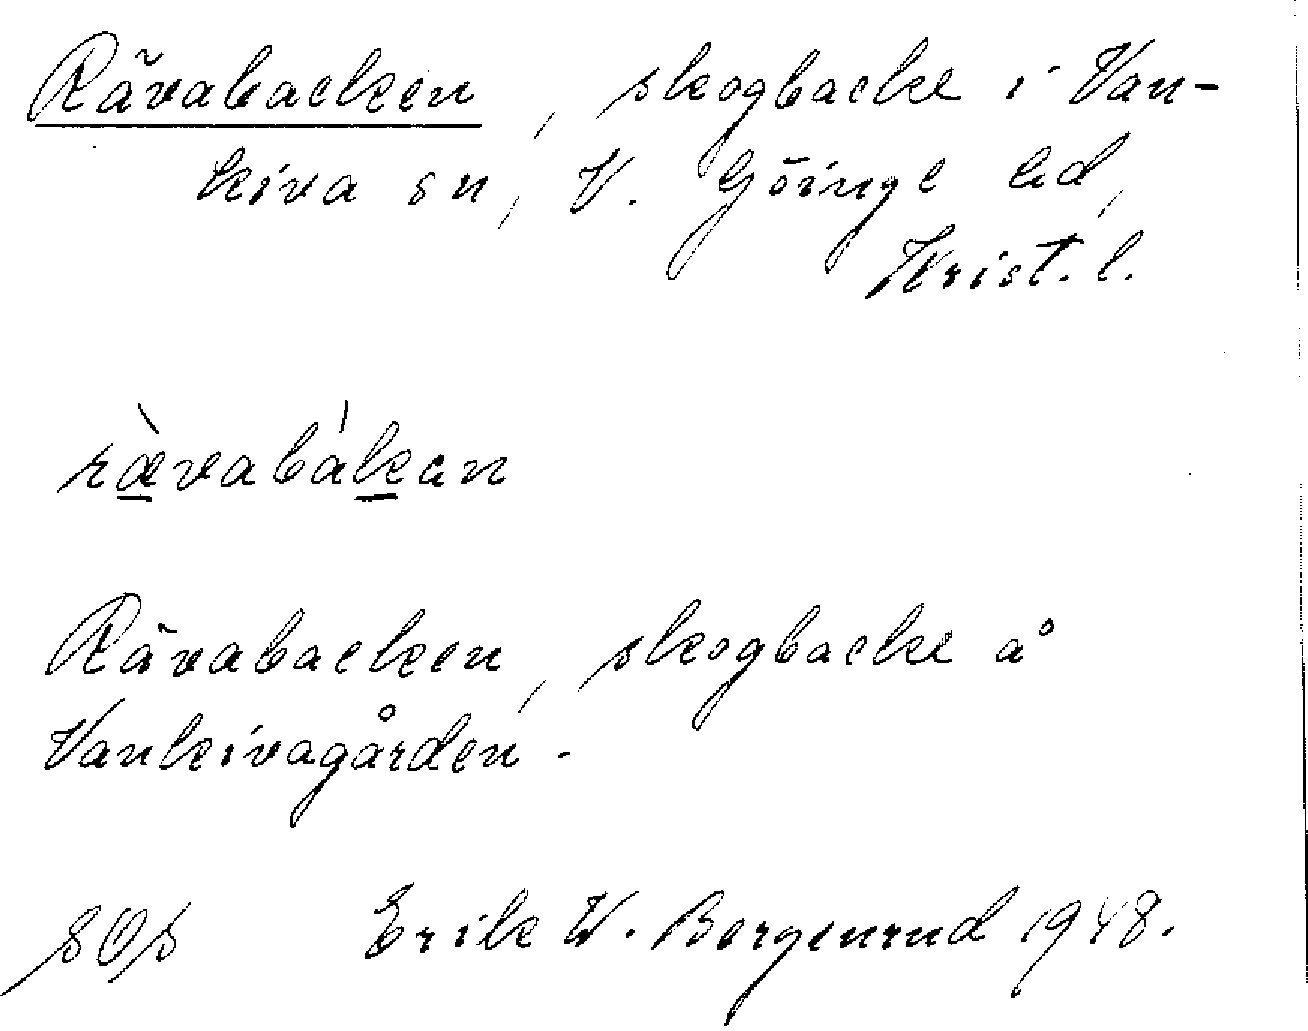 Rävabacken, skogbacke i Van-
kiva sn, V. Göinge hd,
Krist. l.
ràvabák​an
Rävabacken, skogbacke å
Vankivagården.
Erik W. Bergenrud 1948.